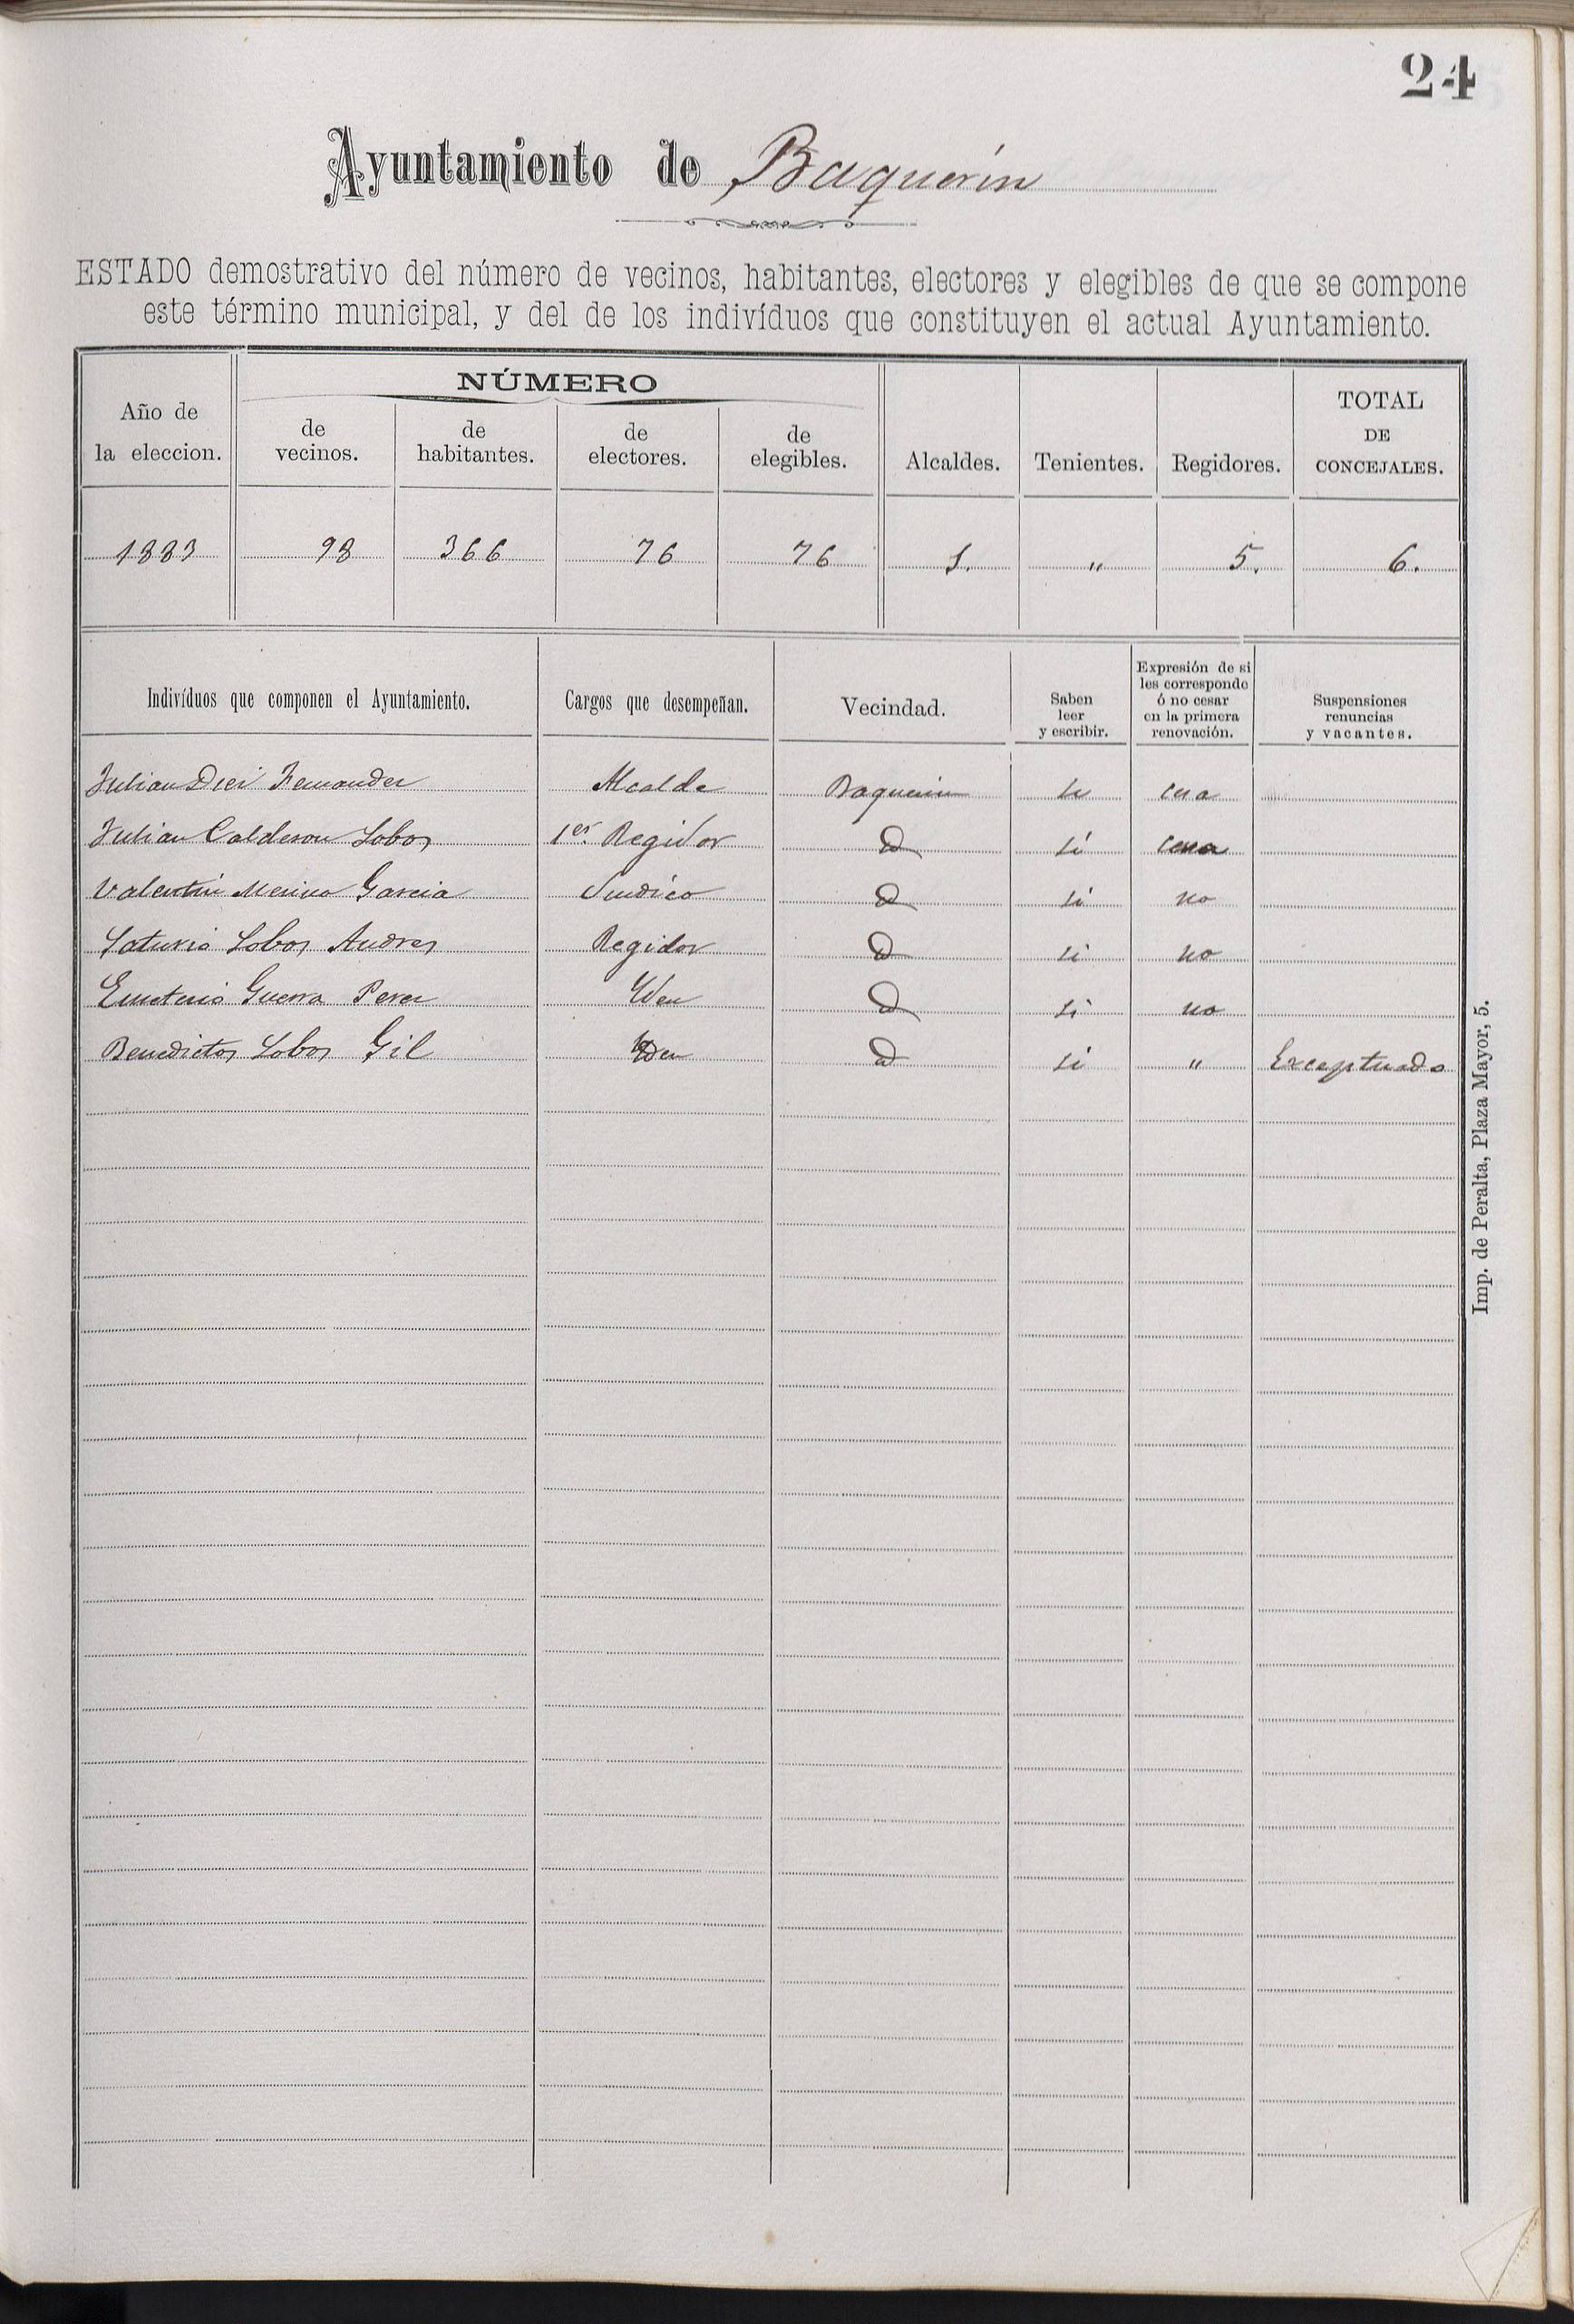 24
Ayuntamiento de Baquerín
ESTADO demostrativo del número de vecinos, habitantes, electores y elegibles de que se compone
este término municipal, y del de los indivíduos que constituyen el actual Ayuntamiento.
Año de la eleccion. NÚMERO de vecinos. de habitantes. de electores. de elegibles. Alcaldes. Tenientes. Regidores. TOTAL DE CONCEJALES.
1883 98 366 76 76 1. " 5. 6.
Indivíduos que componen el Ayuntamiento. Cargos que desempeñan. Vecindad. Saben leer y escribir. Expresión de si les corresponde ó no cesar en la primera renovación. Suspensiones renuncias y vacantes.
Julian Diez Fernandez Alcalde Baquerin si cesa
Julian Calderon Lobos 1er. Regidor D si cesa
Valentin Merino Garcia Sindico D si no
Saturio Lobos Andres Regidor D si no
Emeterio Guerra Perez Yden D si no
Benedictos Lobos Gil Yden D si " Exceptuado
Imp. de Peralta, Plaza Mayor, 5.